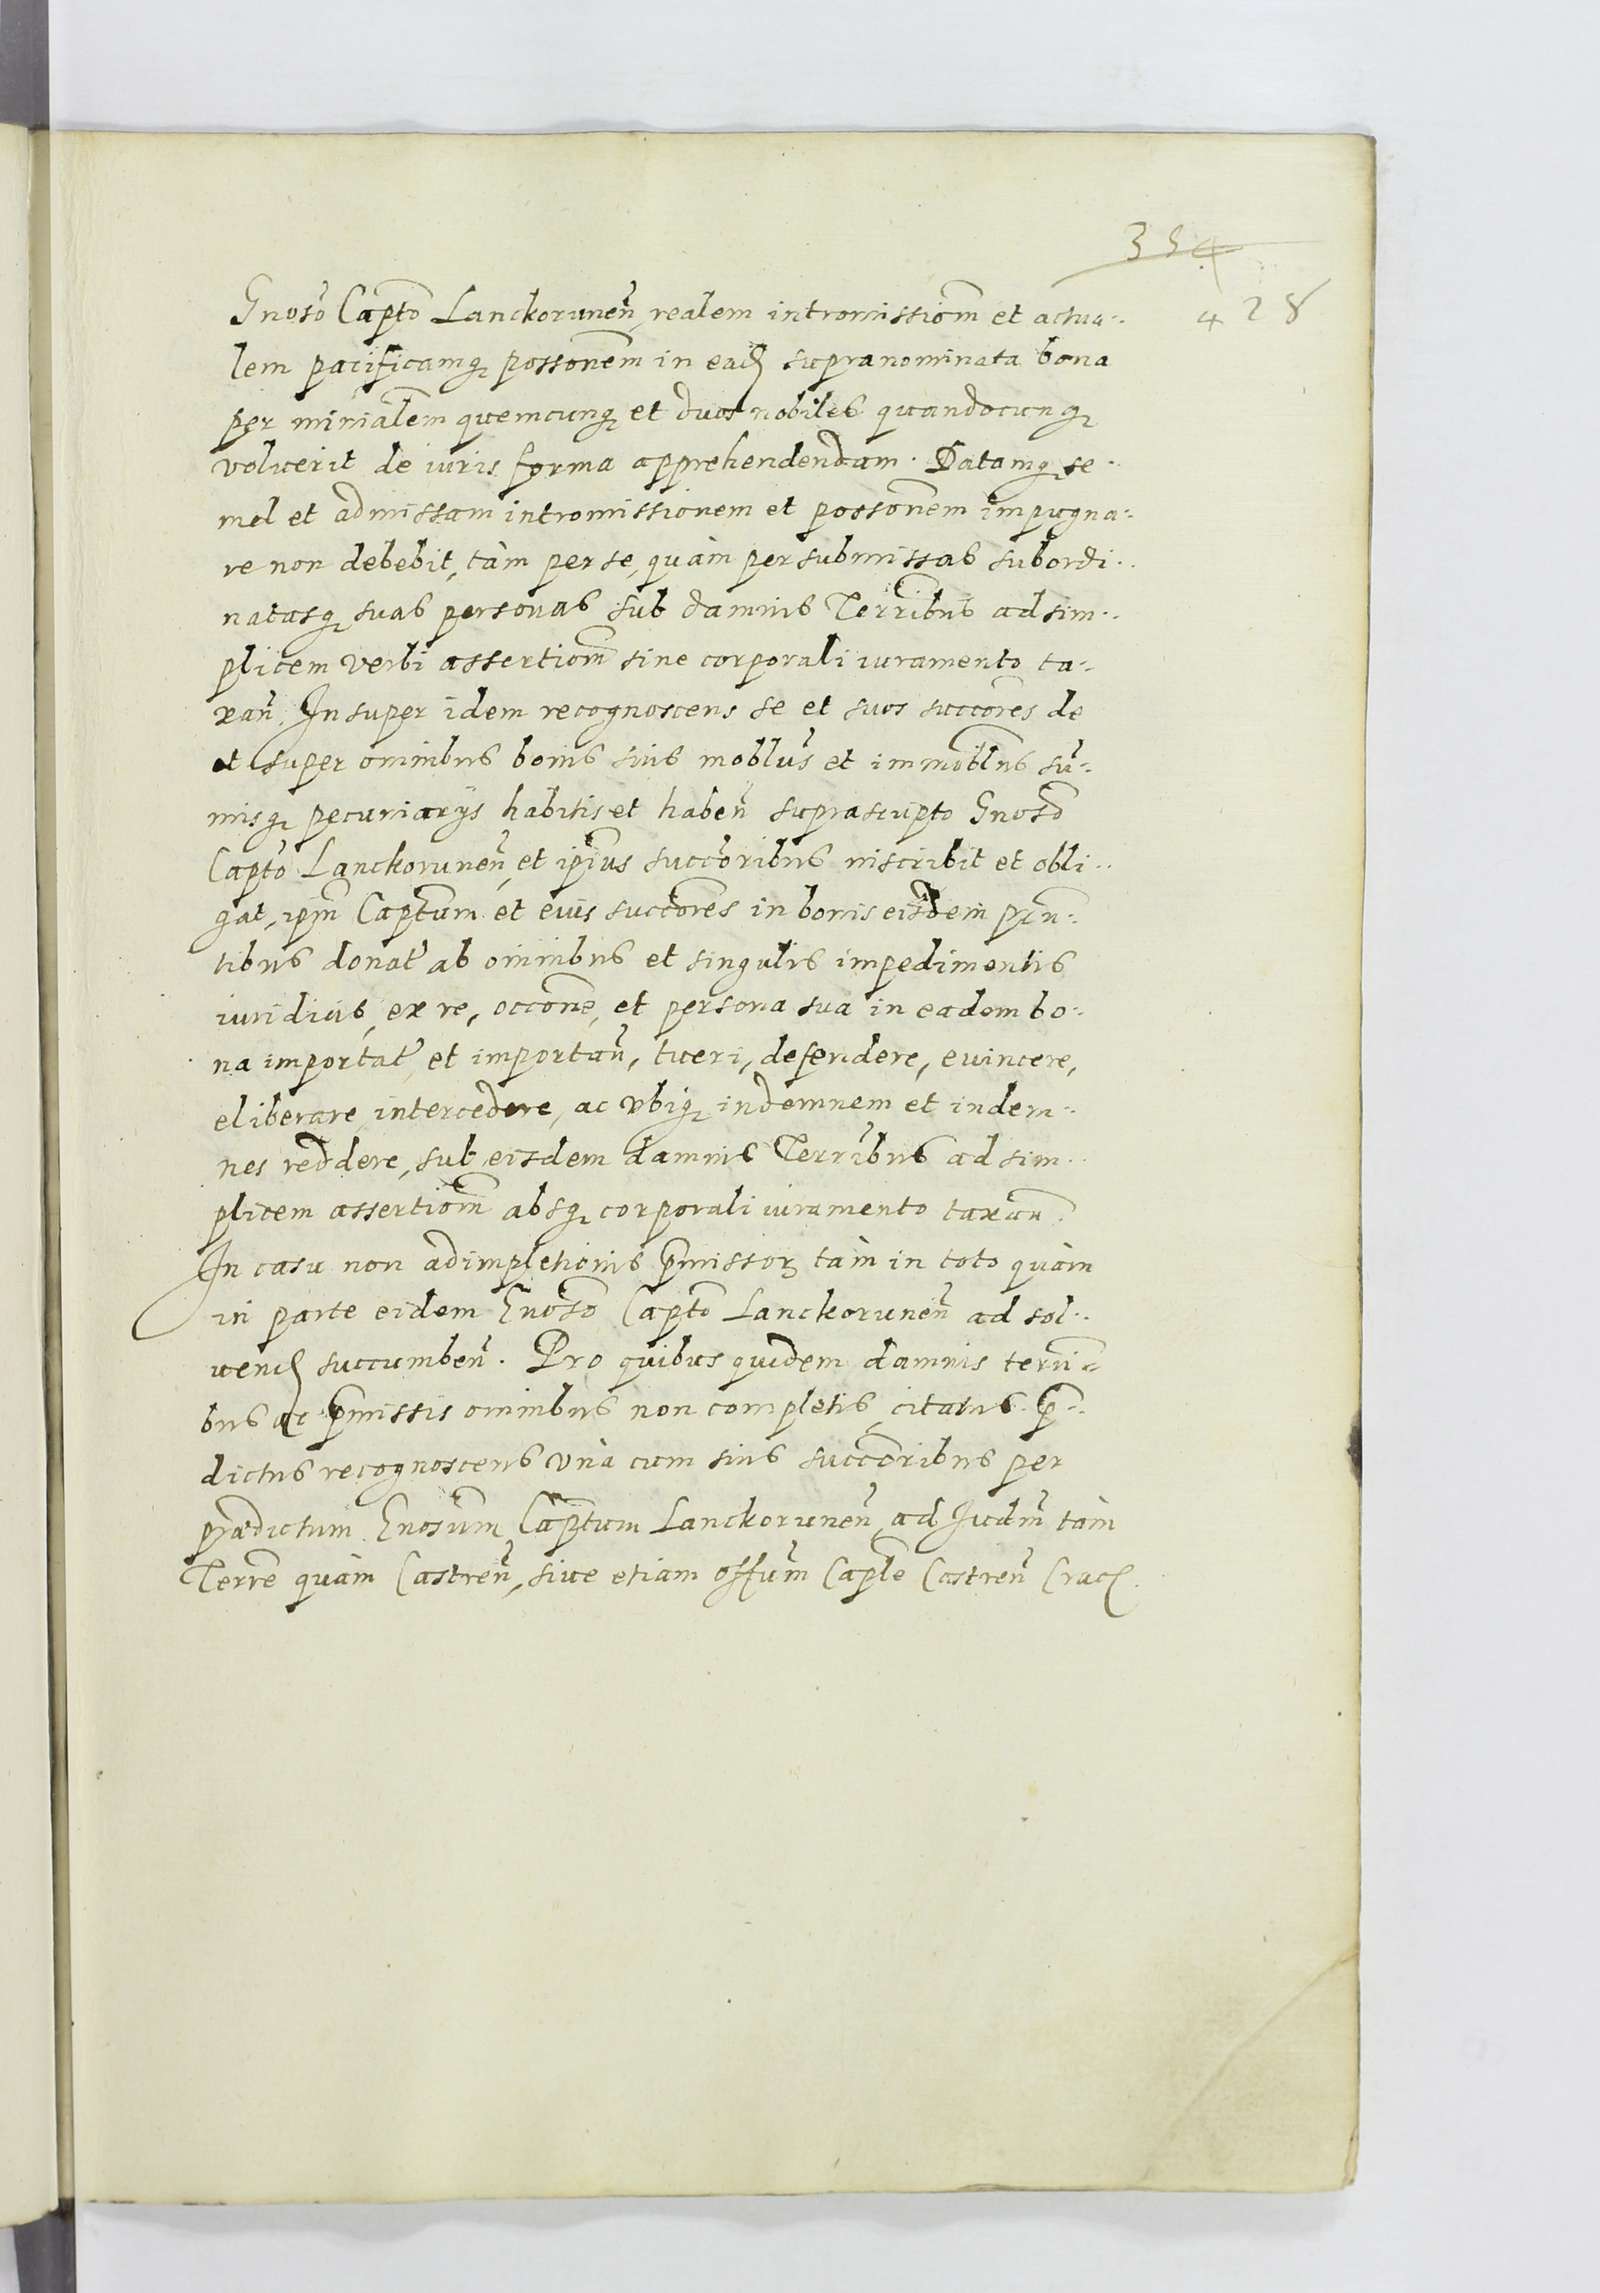 354
428
Gnoso Capto Lanckorunen̄, realem intromissiōm et actua-
lem pacificamq̨ possonēm in ead̨ supranominata bona
per minialēm quemcunq̨ et duos nobiles quandocunq̨
voluerit de iuris forma apprehendendam. Datamq̨ se-
mel et admissam intromissionem et possonēm impugna-
re non debebit, tàm per se, quàm per submissas subordi-
natasq̨ suas personas sub damnis Terribus ad sim-
plicem verbi assertiōm sine corporali iuramento ta-
xan̄. Insuper idem recognoscens se et suos succores̄ de
et super omnibus bonis suis moblus̄ et immoblus̄ su-
misq̨ pecuniarijs habitis et haben̄ suprascripto Gnoso
Capto Lanckorunen̄, et ipius̄ succoribus̄ inscribit et obli-
gat, ipm̄ Captum et eius succores̄ in bonis eisdem prn̄-
tibus donat̄ ab omnibus et singulis impedimentis
iuridicis, ex re, occonē, et persona sua in eadem bo-
na importat̄, et importan̄, tueri, defendere, euincere,
eliberare, intercedere, ac vbiq̨ indemnem et indem-
nes reddere, sub eisdem damnis Terribus ad sim-
plicem assertiōm absq̨ corporali iuramento taxan̄.
In casu non adimpletionis p̄missor̨ tàm in toto quàm
in parte eidem Gnoso Capto Lanckorunen̄ ad sol-
uend̨ succumben̄. Pro quibus quidem damnis terri-
bus ac p̄missis omnibus non completis, citatus p̄-
dictus recognoscens vnà cum suis succoribus̄ per
prædictum Gnosum Captum Lanckorunen̄, ad Iudm̄ tàm
Terre̅ quàm Castren̄, siue etiam offum̄ Caple̅ Castren̄ Crac̨.